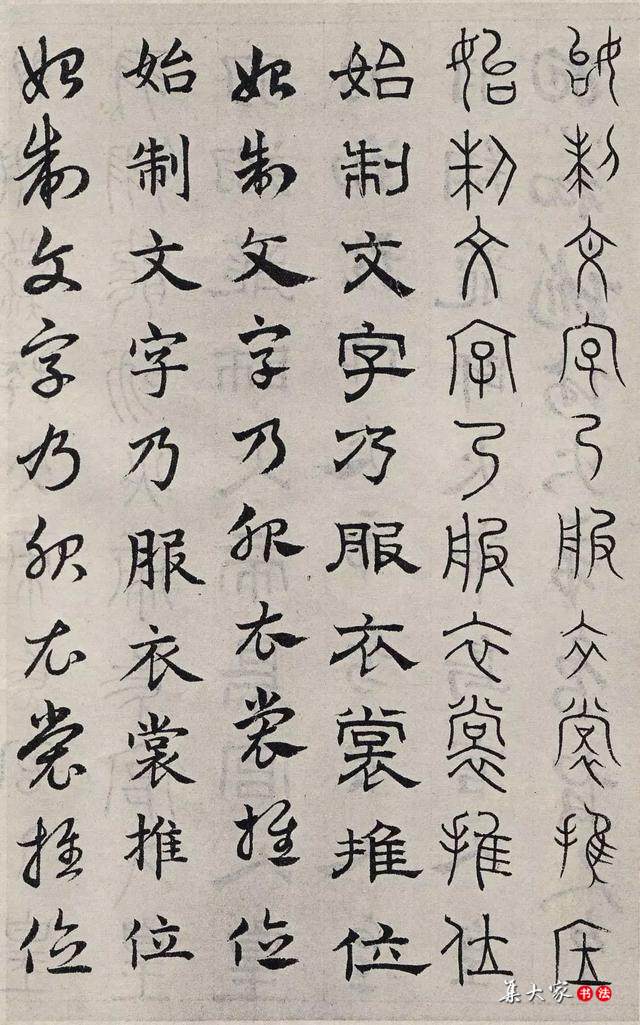 始制文字乃服衣裳推位
始制文字乃服衣裳推位
始制文字乃服衣裳推位
始制文字乃服衣裳推位
始制文字乃服衣裳推位
始制文字乃服衣裳推位
集大家书法